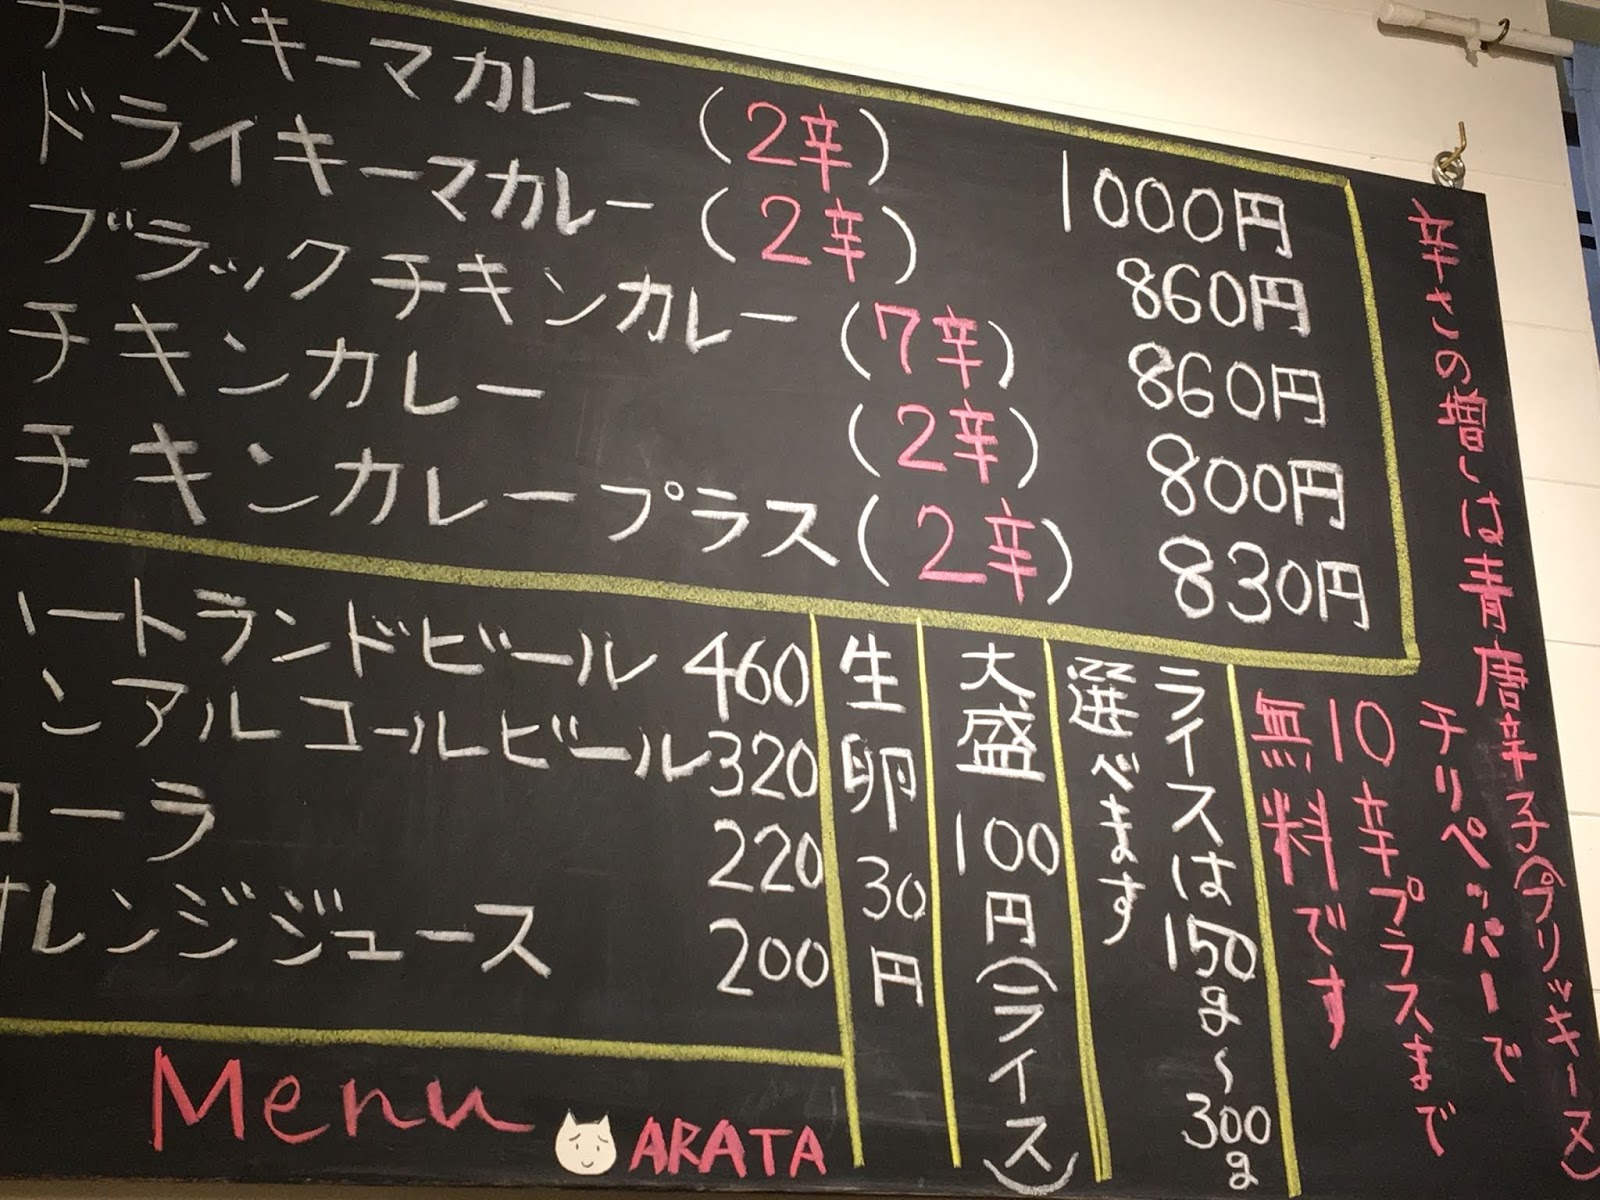 チーズキーマカレー (2辛) 1000円
ドライキーマカレー (2辛) 860円
ブラックチキンカレー (7辛) 860円
チキンカレー (2辛) 800円
チキンカレープラス (2辛) 830円
ハートランドビール 460
ンアルコールビール 320
コーラ 220
オレンジジュース 200
辛さの増しは青唐辛子(プリッキーヌ)
チリペッパーで
10辛プラスまで
無料です
ライスは150g〜300g
選べます
大盛100円(ライス)
生卵30円
Menu
ARATA